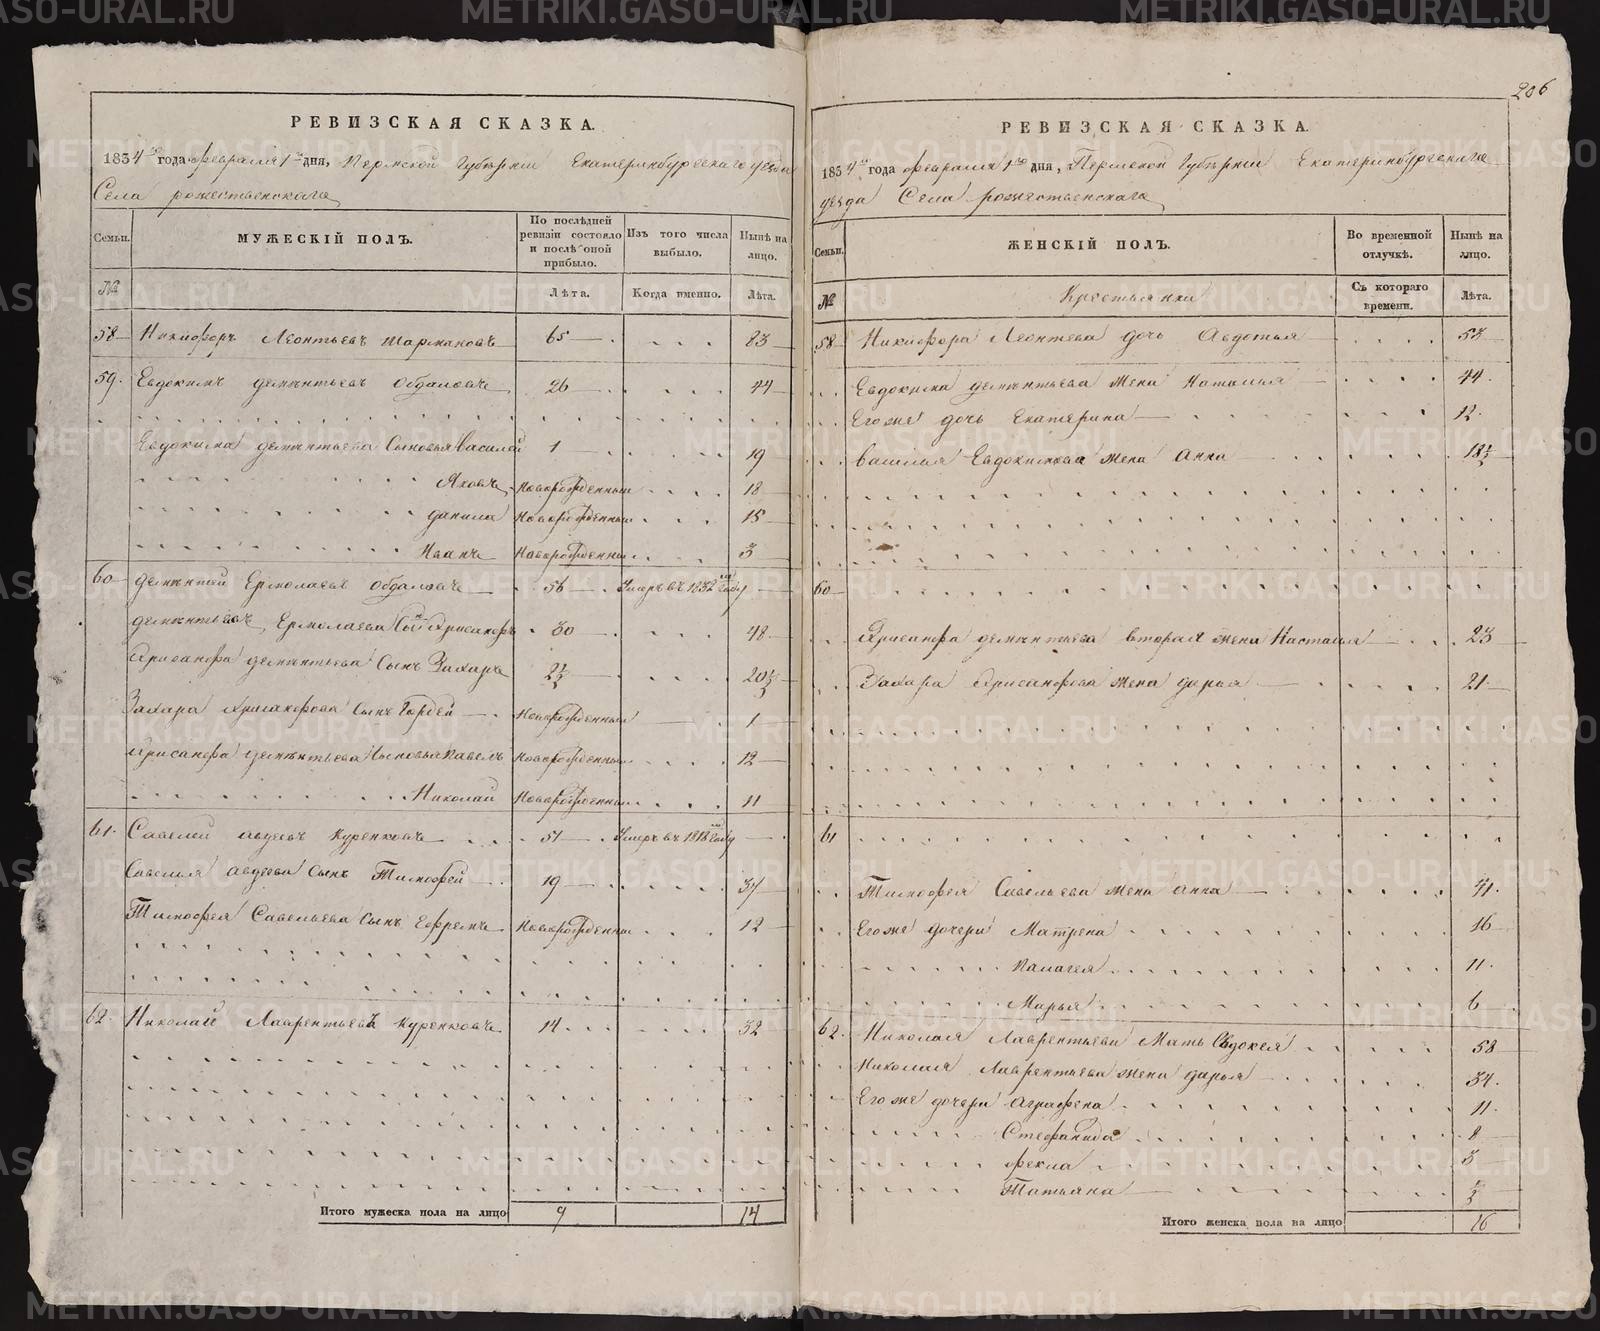 206
РЕВИЗСКАЯ СКАЗКА.
1834го года февраля 1го дня, Пермской Губѣрнии Екатеринбургскаго уезда
Села рожественскаго
Семьи. МУЖЕСКІЙ ПОЛЪ. По послѣдней ревизіи состояло и послѣ оной прибыло. Изъ того числа выбыло. Нынѣ на лицо.
№ Лѣта. Когда именно. Лѣта.
58 Никифоръ Леонтьевъ 65 83
59. Евдокимъ дементьевъ Обдаловъ 26 44
Евдокима дементьева Сыновья василей 1 19
Яковъ Новорожденный 18
данила Новорожденный 15
Иванъ Новорожденный 3
60 дементей Ермолаевъ Обдаловъ 56 Умеръ въ 1832 году
Ермолаева Сынъ Хрисанфъ 30 48
Хрисанфа дементьева Сынъ Захаръ 2½ 20½
Захара Хрисанфова Сынъ Гордей Новорожденный 1
Хрисанфа дементьева Сыновья Павелъ Новорожденный 12
Николай Новорожденный 11
61. Савелей авдеевъ Куренковъ 51 Умеръ въ 1818 году
Савелья авдеева Сынъ Тимофей 19 37
Тимофея Савельева Сынъ Ефремъ Новорожденный 12
62. Николай Лаврентьевъ Куренковъ 14 32
Итого мужеска пола на лицо 9 14
РЕВИЗСКАЯ СКАЗКА.
1834го года февраля 1го дня, Пермской Губѣрнии Екатеринбургскаго
уезда Села рожественскаго
Семьи. ЖЕНСКІЙ ПОЛЪ. Во временной отлучкѣ. Нынѣ на лицо.
№ Крестьянки Съ котораго времени. Лѣта.
58 Никифора Леонтева дочь Авдотья 53
Евдокима дементьева Жена Наталья 44.
Егоже дочь Екатерина 12.
василья Евдокимова жена Анна 18½
60
Хрисанфа дементьева вторая жена Настасья 23
Захара Хрисанфова жена дарья 21.
61
Тимофея Савельева жена анна 41.
Егоже дочери Матрена 16
Палагея 11.
Марья 6
62. Николая Лаврентьева Мать Евдокея 58
Николая Лаврентьева жена дарья 34.
Егоже дочери аграфена 11.
Стефанида 8
фекла 3
Татьяна ½
Итого женска пола на лицо 16
METRIKI.GASO-URAL.RU